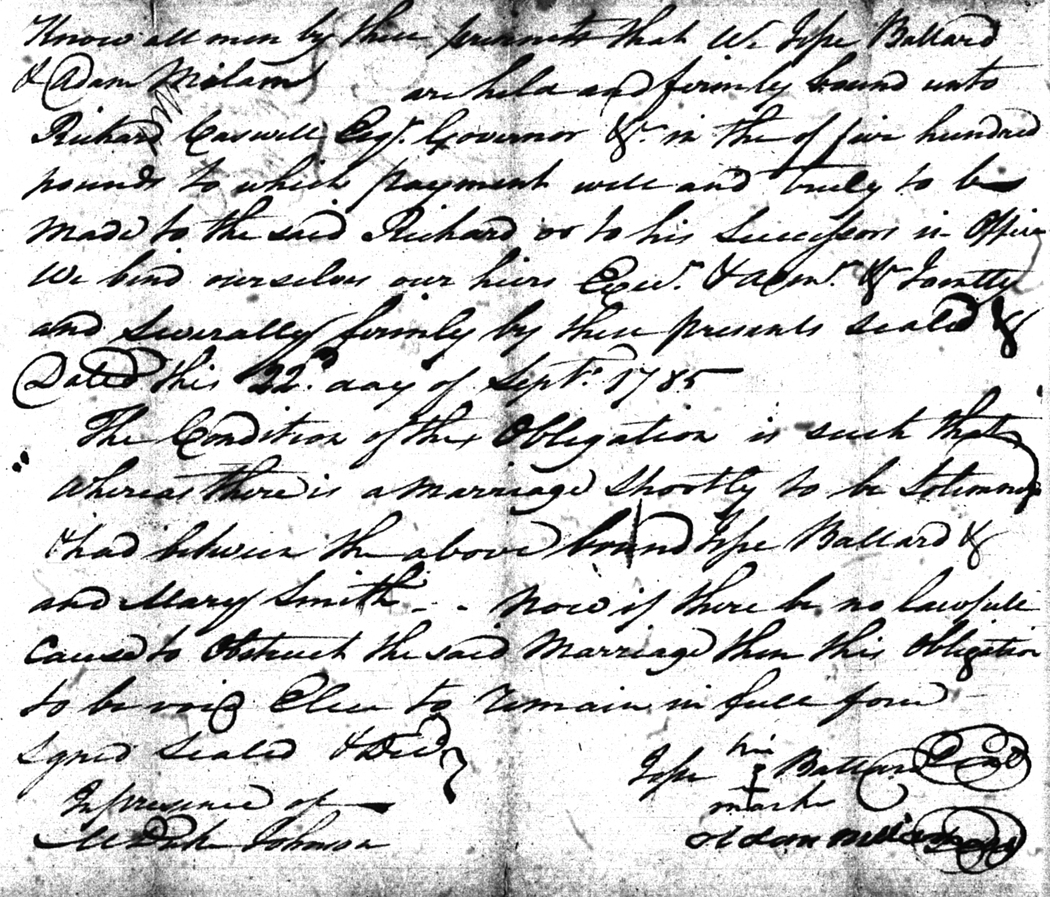 Know all men by these presents that We Jesse Ballard
& Adam Milam are held and firmly bound unto
Richard Caswell Esqr. Governor &c in the of five hundred
pounds to which payment well and truly to be
made to the said Richard or to his Successors in Office
We bind ourselves our heirs Exers. & Admrs. &c Jointly
and Severally firmly by these presents sealed &
Dated this 22d. day of Septr. 1785
The Condition of the Obligation is such that
whereas there is a Marriage Shortly to be
& had between the above bound Jesse Ballard &
and Mary Smith - - Now if there be no lawfull
Cause to Obstruct the said Marriage then this Obligation
to be void Else to remain in full force
Signed Sealed & Deld
In presence of
Johnson
his
Jesse Ballard Seal
mark
Adam Milam Seal